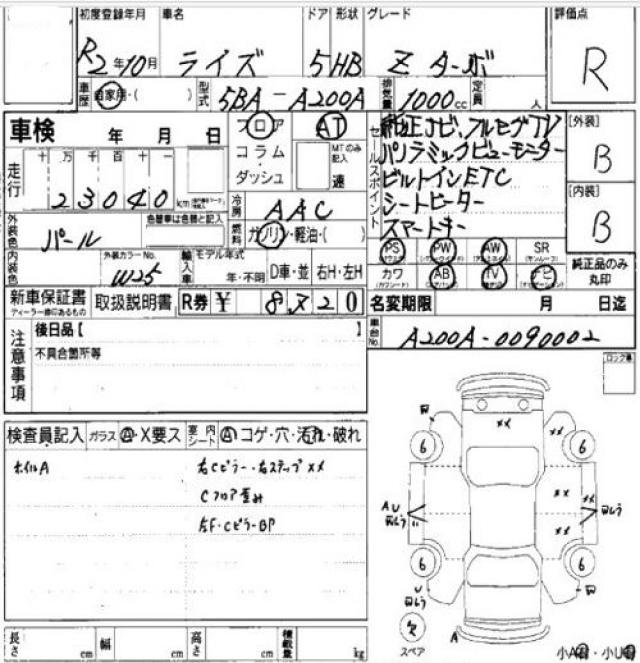 初度登録年月 車名 ドア 形状 グレード 評価点
R2年10月 ライズ 5 HB Z ターボ R
車歴 自家用・( ) 型式 5BA-A200A 排気量 1000cc 定員 人
車検 年 月 日 フロア AT セールスポイント 純正ナビ、フルセグTV [外装]
コラム MTのみ記入 パノラミックビューモニター B
走行 十 万 千 百 十 一 ダッシュ 速 ビルトインETC
23040 km シートヒーター [内装]
外装色 パール 色替車は色替と記入 冷房 AAC スマートキー B
燃料 ガソリン・軽油・( )
内装色 外装カラーNo. W25 輸入車 モデル年式 年・不明 D車・並 右H・左H
PS PW AW SR 純正品のみ丸印
カワ AB TV ナビ
新車保証書 ディーラー印のあるもの 取扱説明書 R券 ¥ 8,720 名変期限 月 日迄
注意事項 後日品【 】 車台No. A200A-0090002
不具合箇所等 ロック番
検査員記入 ガラス A・X要ス 室内シート A コゲ・穴・汚れ・破れ
ホイルA 右Cピラー・右ステップ XX
Cフロア歪み
左F・CピラーBP
XX XX
6 6
XX XX
AU XX
6 6
U
A
スペア
長さ cm 幅 cm 高さ cm 積載量 kg 小A・小U